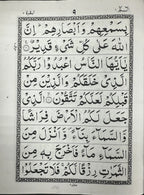 بِسَمْعِهِمْ وَاَبْصَارِهِمْ اِنَّ
اللّٰهَ عَلٰى كُلِّ شَیْءٍ قَدِیْرٌ
یٰٓاَیُّهَا النَّاسُ اعْبُدُوْا رَبَّكُمُ
الَّذِیْ خَلَقَكُمْ وَالَّذِیْنَ مِنْ
قَبْلِكُمْ لَعَلَّكُمْ تَتَّقُوْنَ الَّذِیْ
جَعَلَ لَكُمُ الْاَرْضَ فِرَاشًا
وَّالسَّمَآءَ بِنَآءً وَّاَنْزَلَ مِنَ
السَّمَآءِ مَآءً فَاَخْرَجَ بِهٖ مِنَ
الثَّمَرٰتِ رِزْقًا لَّكُمْ فَلَا تَجْعَلُوْا